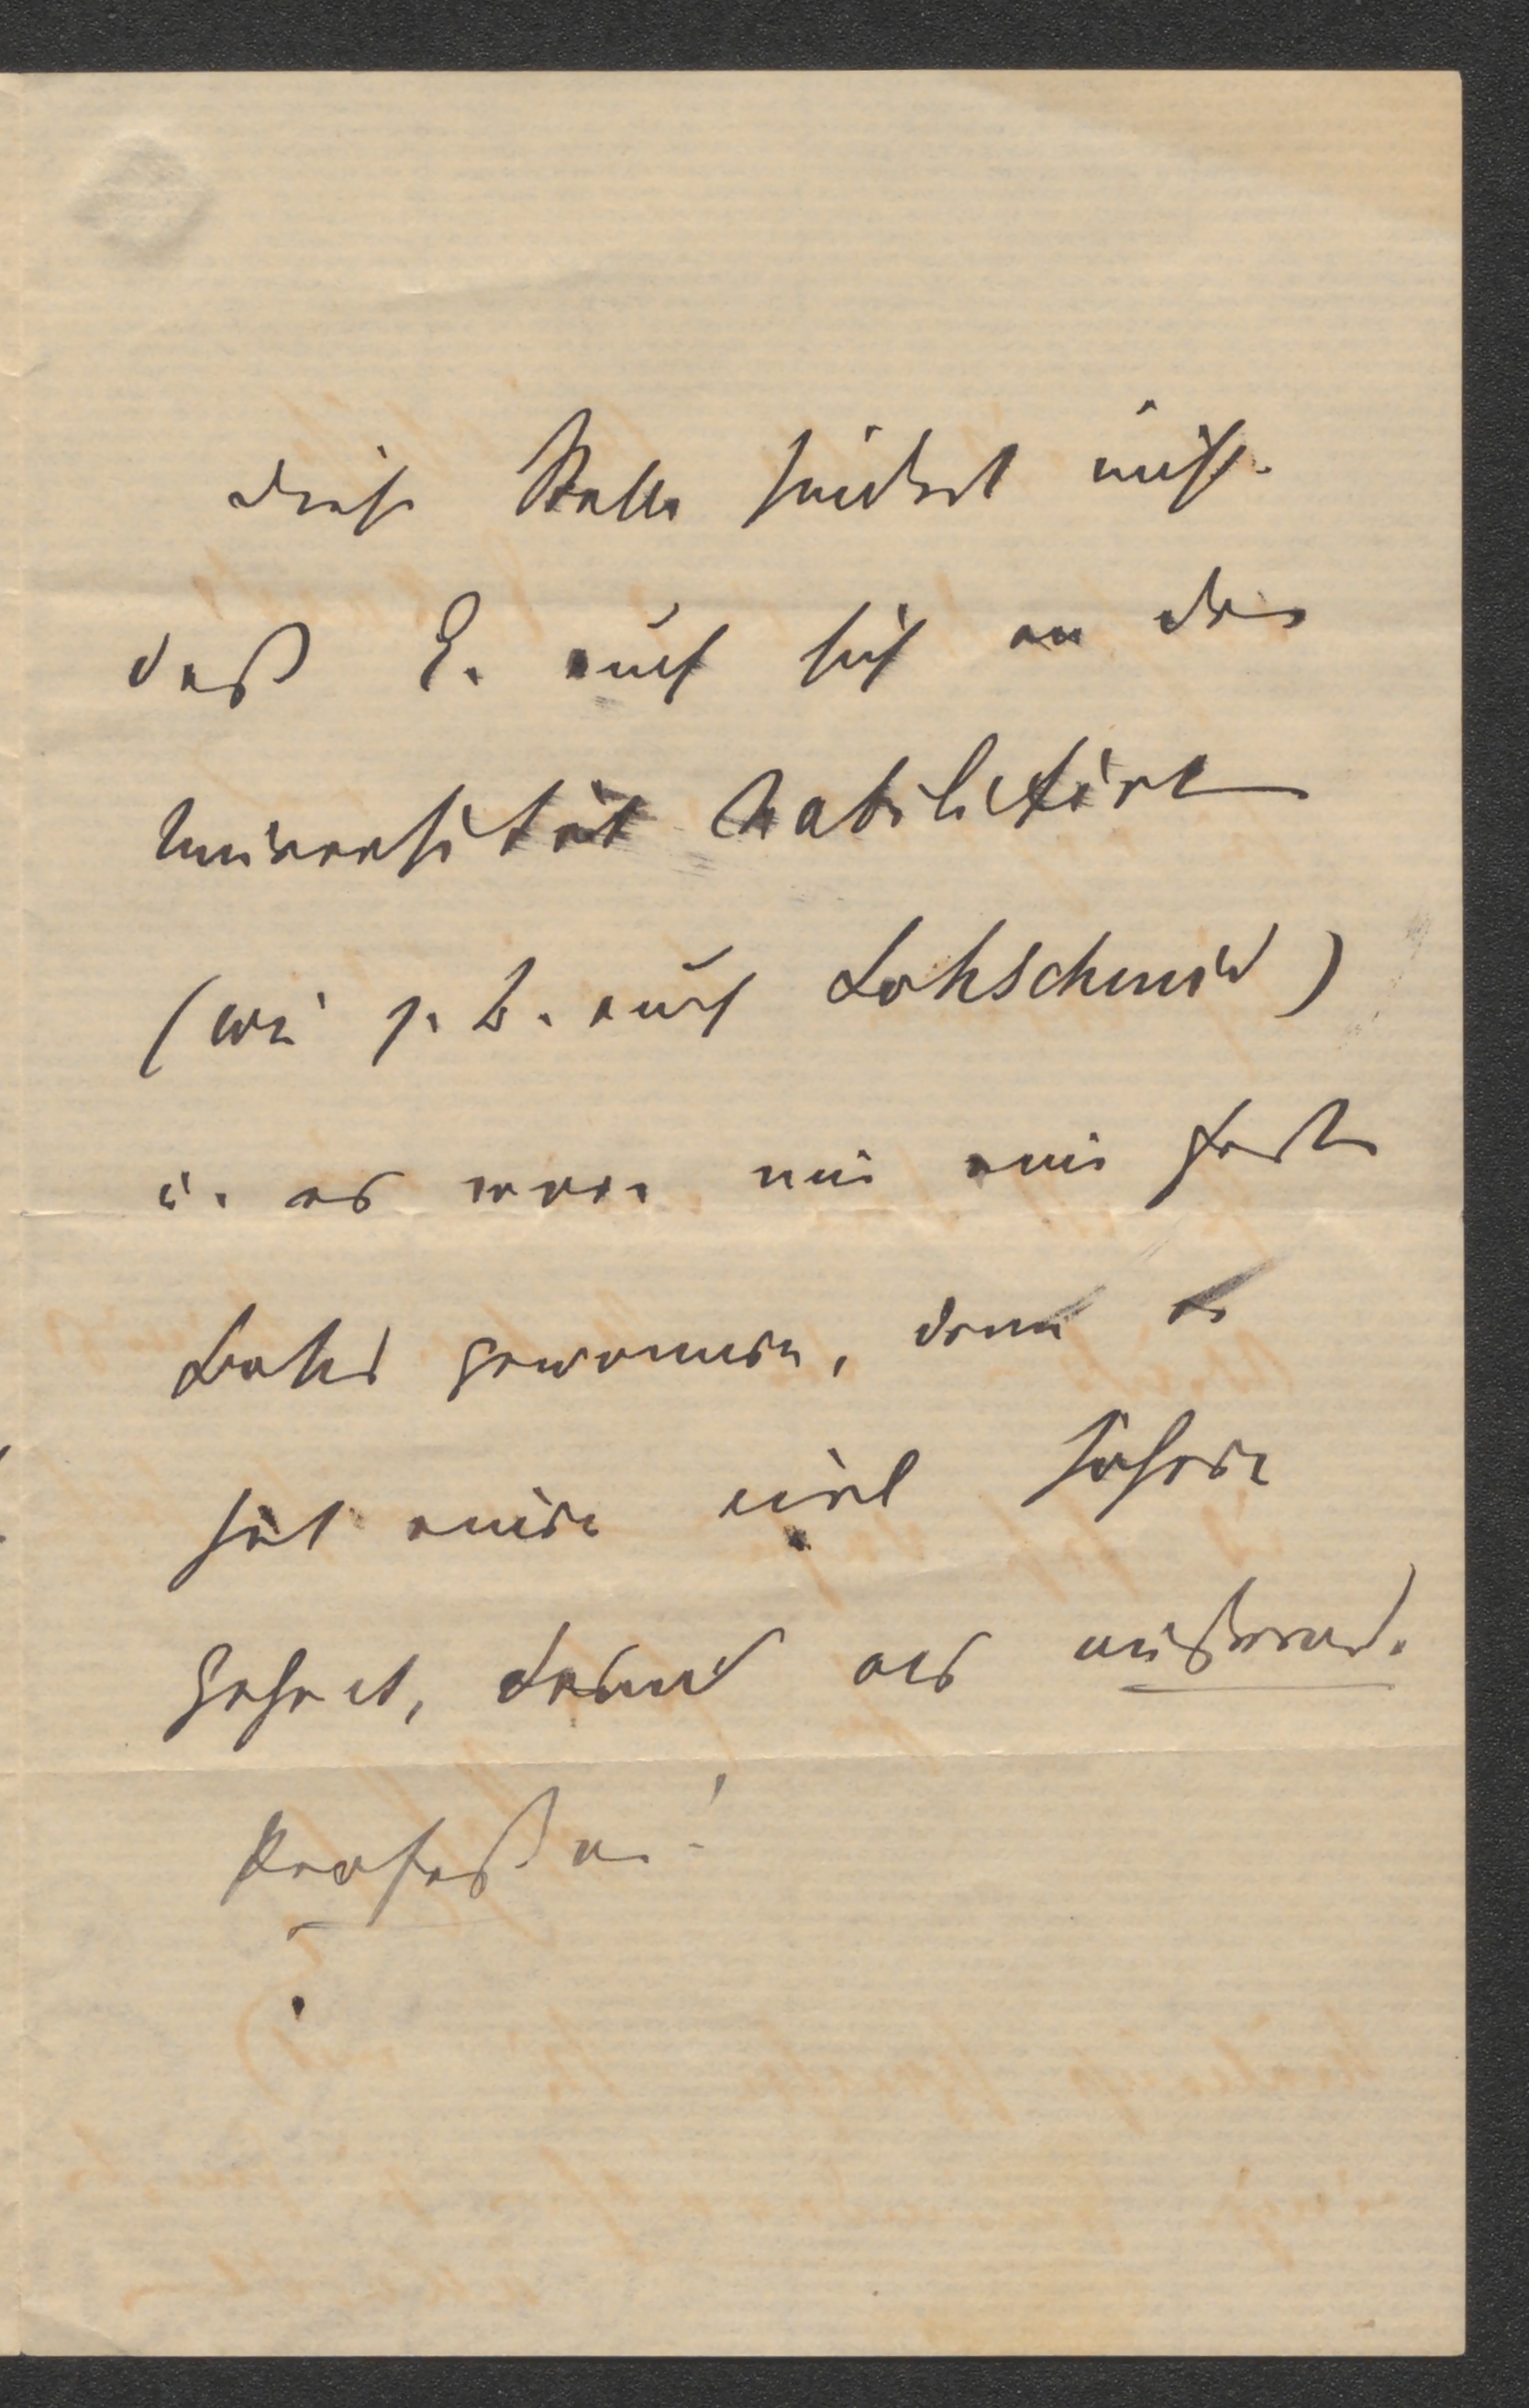 diese Stelle hindert nicht
daß E. auch sich an der
Universität habilitirt
(wie z. B. auch Lohschmid)
u. es wäre nur eine feste
Basis gewonnen, denn er
hat einen viel höhern
Gehalt, denn als außerord.
Professor!